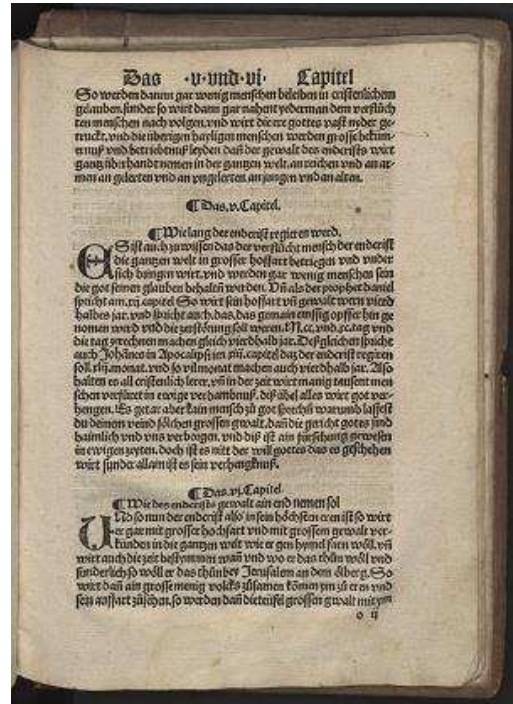 Das ·v·vnd·vj· Capitel
So werden dann gar wenig menschen beleiben in cristenlichem
gelauben. sunder so wirt dann gar nahent yederman dem verflůch
ten menschen nach volgen. vnd wirt die ere gottes vast nyder ge-
truckt. vnd die überigen hayligen menschen werden grosse bekum-
ernuß vnd betriebtnuß leyden dañ der gewalt des endcrists wirt
gantz überhandt nemen in der gantzen welt. an reichen vnd an ar-
man an gelerten vnd an vngelerten. an jungen vnd an alten.
¶ Das. v. Capitel.
¶ Wie lang der endcrist regieren werd.
ES ist auch zu wissen das der verflůcht mensch der endcrist
die gantzen welt in grosser hoffart betriegen vnd vnder
sich bringen wirt. vnd werden gar wenig menschen sein
die got seinen glauben behalten werden. Vñ als der prophet daniel
spricht am. xij. capitel So wirt sein hoffart vñ gewalt wern vierd
halbes jar. vnd spricht auch. das. das gemain emssig opffer hin ge
nomen werd vnd die zerstörung soll weren. M. cc. vnd. xc. tag vnd
die tag gerechnen machen gleich vierdhalb jar. Deßgleichen spricht
auch Johānes in Apocalipsi im xiij. capitel daz der endcrist regiren
soll. xlij. monat. vnd so vil monat machen auch vierdhalb jar. Also
halten es all cristenlich lerer. vñ in der zeit wirt manig tausent men
schen verfüret in ewige verdambnuß. diß übel alles wirt got ver-
hengen. Es getar aber kain mensch zů got sprechñ warumb lassest
du deinem veind sölchen grossen gwalt. dañ die gericht gottes sind
haimlich vnd vns verborgen. vnd diß ist ain fürsehung gewesen
in ewigen zeyten. doch ist es nitt der will gottes das es geschehen
wirt sunder allain ist es sein verhengknuß.
¶ Das. vj. Capitel.
¶ Wie des endcrists gewalt ain end nemen sol
UNd so nun der endcrist also in sein höchsten eren ist so wirt
er gar mit grosser hochfart vnd mit grossem gewalt ver-
künden in die gantzen welt wie er gen hymel farn wöll. vñ
wirt auch die zeit bestymmen wañ vnd wo er das thůn wöl vnd
sunderlich so wöll er das thůn bey Jerusalem an dem ölberg. So
wirt dañ ain grosse menig volcks zůsamen komen ym zů eren vnd
sein auffart zůsehen. so werden dañ die teufel grossen gwalt mit ym
o ij